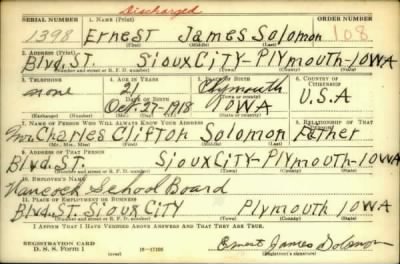 Discharged
SERIAL NUMBER 1. NAME (Print) ORDER NUMBER
1398 ERNEST JAMES SOLOMON 108
(First) (Middle) (Last)
2. ADDRESS (Print)
Blvd. ST. SIOUX CITY-PLYMOUTH-IOWA
(Number and street or R. F. D. number) (Town) (County) (State)
3. TELEPHONE 4. AGE IN YEARS 5. PLACE OF BIRTH 6. COUNTRY OF CITIZENSHIP
none 21 Plymouth
DATE OF BIRTH (Town or county)
Oct-27-1918 IOWA U.S.A
(Exchange) (Number) (Mo.) (Day) (Yr.) (State or country)
7. NAME OF PERSON WHO WILL ALWAYS KNOW YOUR ADDRESS 8. RELATIONSHIP OF THAT PERSON
Mr. Charles Clifton Solomon Father
(Mr., Mrs., Miss) (First) (Middle) (Last)
9. ADDRESS OF THAT PERSON
Blvd. ST. SIOUX CITY-PLYMOUTH-IOWA
(Number and street or R. F. D. number) (Town) (County) (State)
10. EMPLOYER'S NAME
Hancock School Board
11. PLACE OF EMPLOYMENT OR BUSINESS
Blvd. ST. SIOUX CITY PLYMOUTH IOWA
(Number and street or R. F. D. number) (Town) (County) (State)
I AFFIRM THAT I HAVE VERIFIED ABOVE ANSWERS AND THAT THEY ARE TRUE.
REGISTRATION CARD
D. S. S. Form 1 Ernest James Solomon
(Registrant's signature)